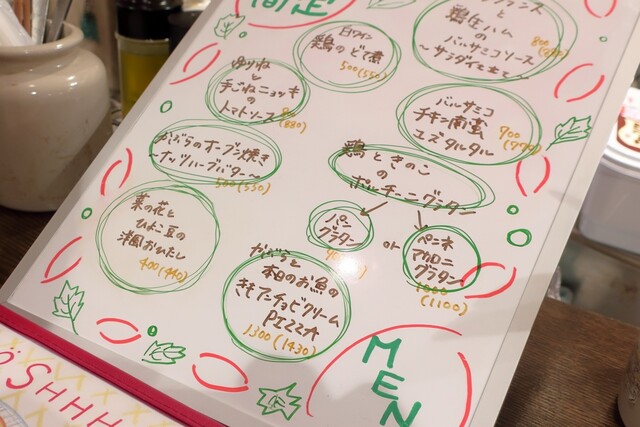 限定
白ワイン
鶏のどて煮
500(550)
鶏生ハム
の
バルサミコソース
〜サラダ仕立て〜
800
ゆりね
と
手ごねニョッキ
の
トマトソース
(880)
バルサミコ
チキン南蛮
ユズタルタル
900
かぶらのオーブン焼き
〜ナッツハーブバター〜
500(550)
鶏ときのこ
の
ポルチーニグラタン
パン
グラタン
or
ペンネ
マカロニ
グラタン
1000
(1100)
菜の花と
ひよこ豆の
洋風おひたし
400(440)
かぶらと
本日のお魚の
きもアンチョビクリーム
PIZZA
1300(1430)
MEN
SHHH